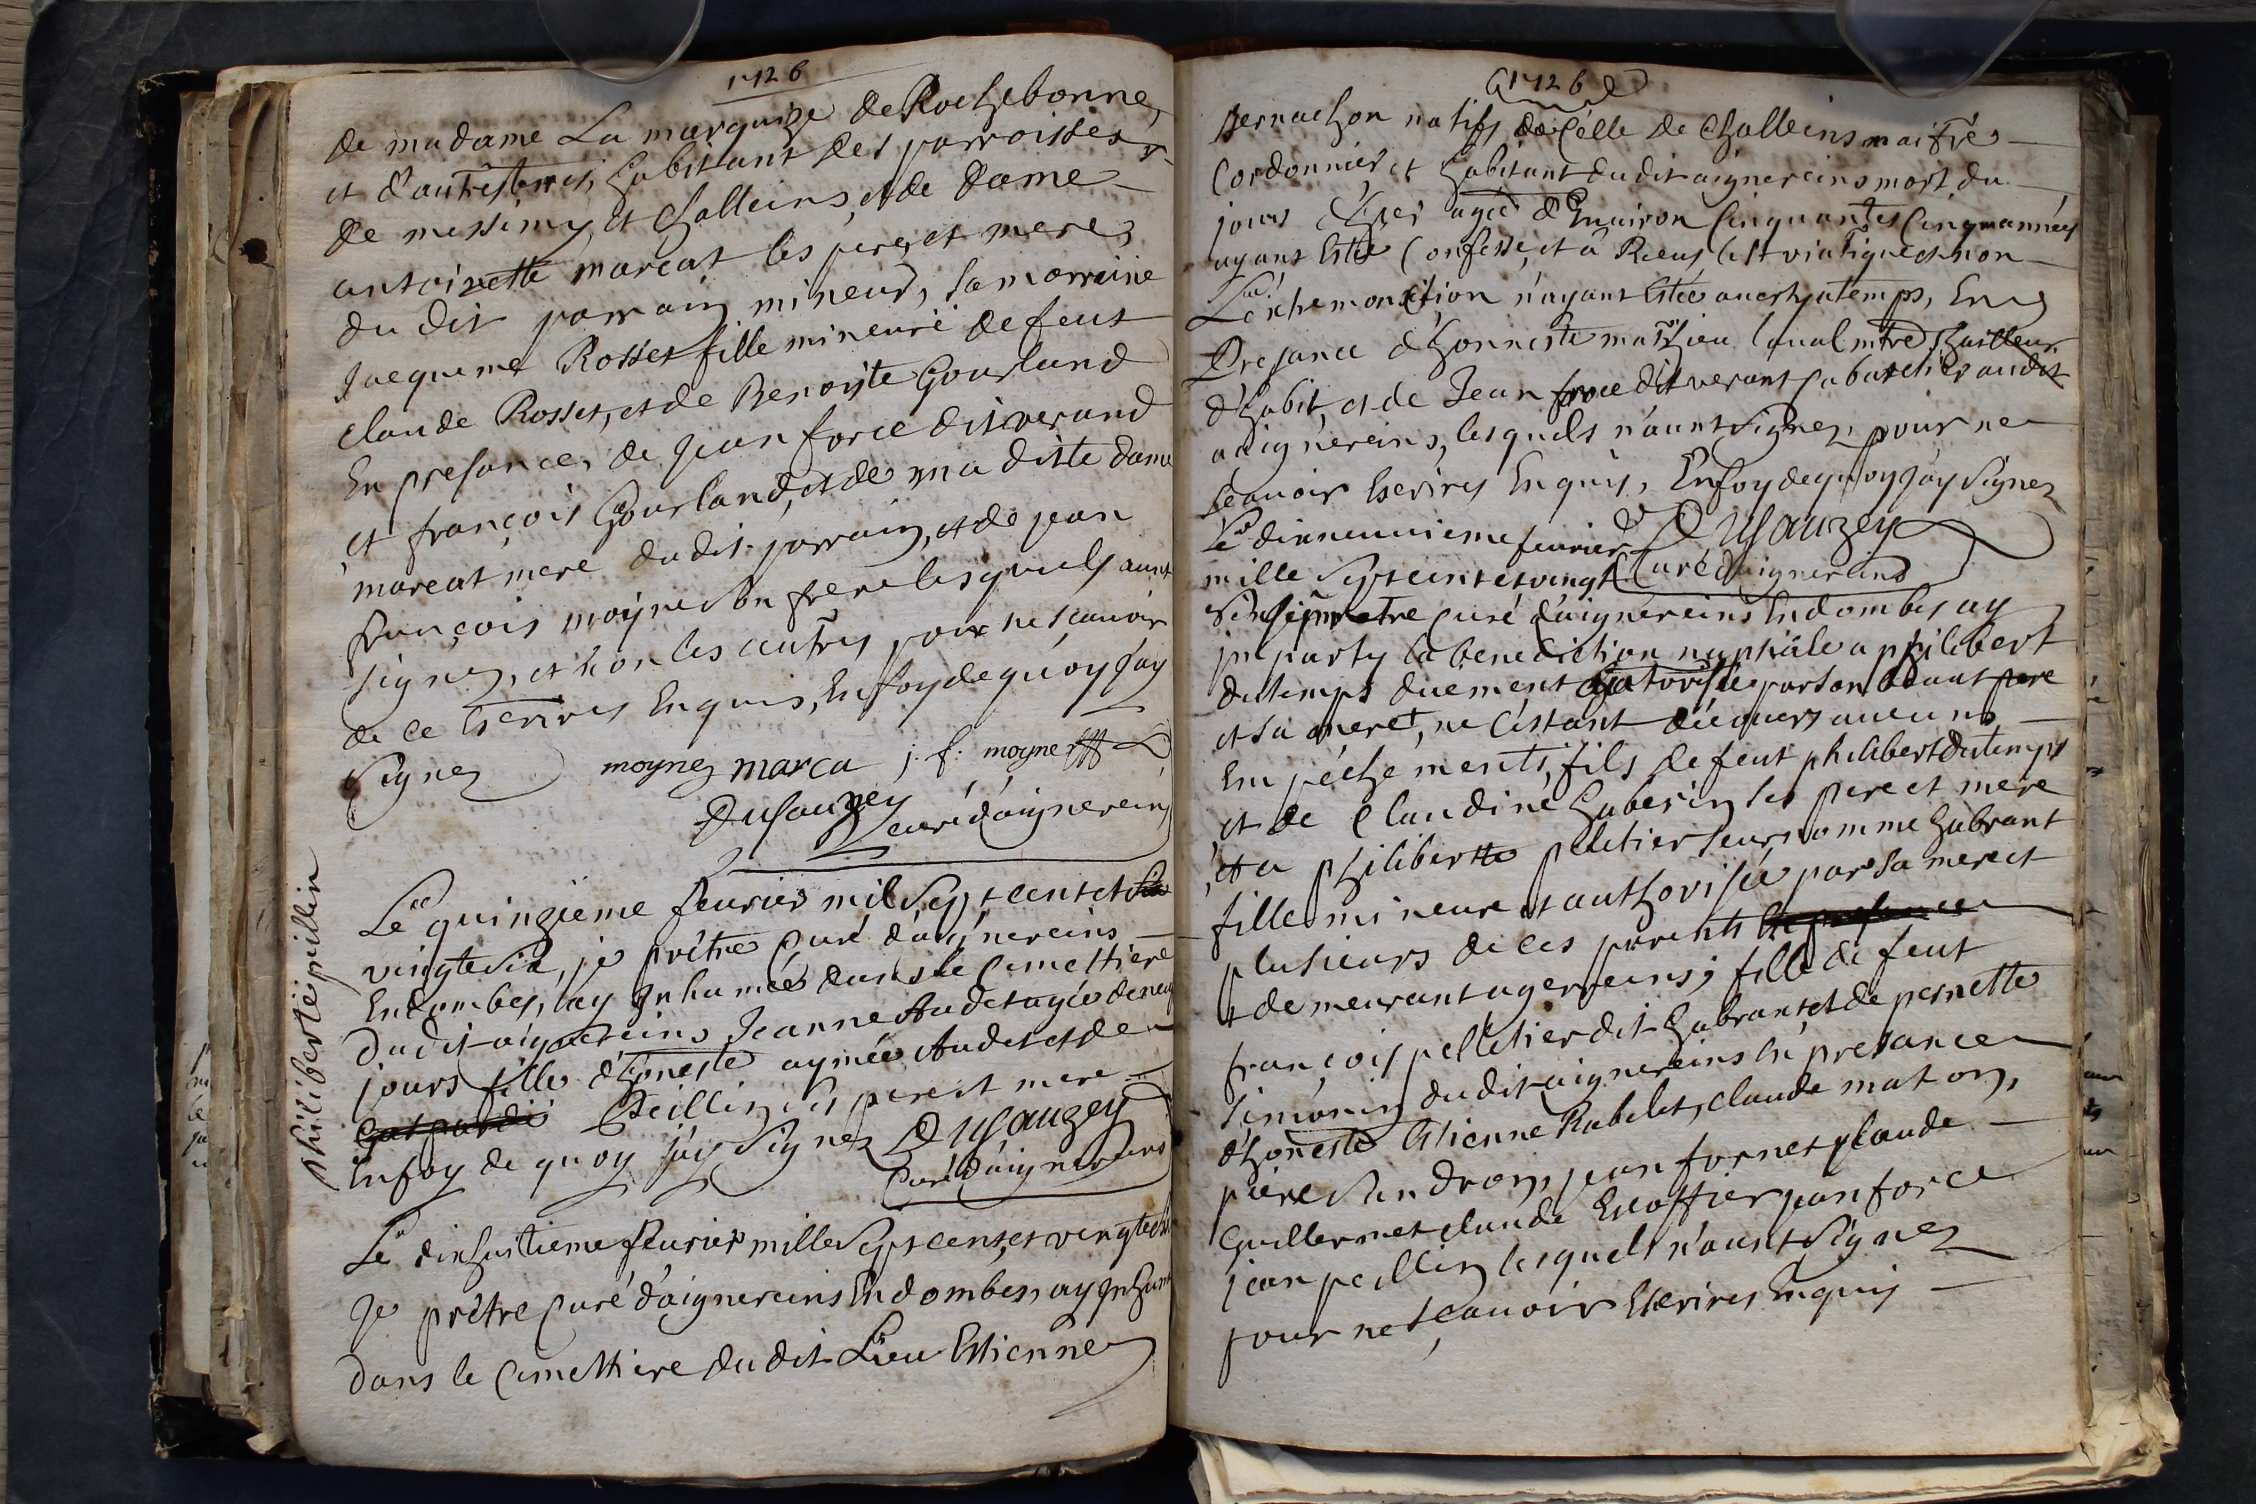 1726
de madame La marquize de Rochebonne,
et d'autres terres, habitant des parroisses
de messimy, et challeins, et de dame
antoinette marcat ses pere, et mere,
du dit parrain mineur, sa marraine
Jacqueme Rosset fille mineure de feut
claude Rosset, et de Benoiste Gourland
En presance, de jean force dit verand
et françois Gourland, et de ma ditte dame
marcat mere du dit parrain, et de jean
françois moyne son frere lesquels aunt
signez, et non les autres pour ne scavoir
de ce Escrires Enquis, En foy de quoy j'ay
Signez moynez marca j. f. moyne
Dusauzey
curé d'aignereins
philiberte peillin
Le quinzieme feurier mil Sept cent et
vingt Six, je prêtre Curé d'aignereins
En dombes, ay Inhumée dans le Cimettiere
Du dit aignereins Jeanne Audet agée de neuf
jours fille d'honeste aymée Audet et de
Peillin Ses pere et mere
En foy de quoy j'ay Signez Dusauzey
Curé d'aignereins
Le dixhuitieme feurier mille Sept cent, et vingt
Je prêtre Curé d'aignereins En dombes, ay Inhumé
Dans le Cimettiere du dit Lieu Estienne
1726
Bernachon natifs de Celle de Challeins maitre
Cordonnier et habitant du dit aignereins mort du
jours d'hyer agée d'Enuiron Cinquantes Cinq années
ayant Estée Confessé, et a Reçeu le St viatique et non
L'extremonction n'ayant Estée aucertatemps, En
Presance d'honneste mathieu laual mtre thailleur
d'habit, et de Jean force dit verant Cabaretier au dit
aignereins, lesquels n'aunt Signez, pour ne
scauoir Escrires Enquis, En foy de quoy j'ay Signez
Le dixneuuieme feurier Dusauzey
mille Sept cent et vingt Curé d'aignereins
Six je pretre curé d'aignereins En dombes ay
jnparty la benediction nuptiale a philibert
dutemps duement authorisée par son
et sa mere, ne c'estant décauers aucuns
Empéchements, fils de feut philibert Dutemps
et de Claudine ses pere et mere
et a philiberte peletier surnomme habrant
fille mineure et authorisée par sa mere et
plusieurs de ces parents
et demeurant agereins, fille de feut
françois pelletier dit habrant, et de pernette
Simonin du dit aignereins En presance
d'honeste Estienne Rabelet, claude maton,
piere Sandron, jean fornet claude
Guillermet claude Escoffier jean force
jean peillin lesquels n'aunt Signez
pour ne scauoir Escrires Enquis